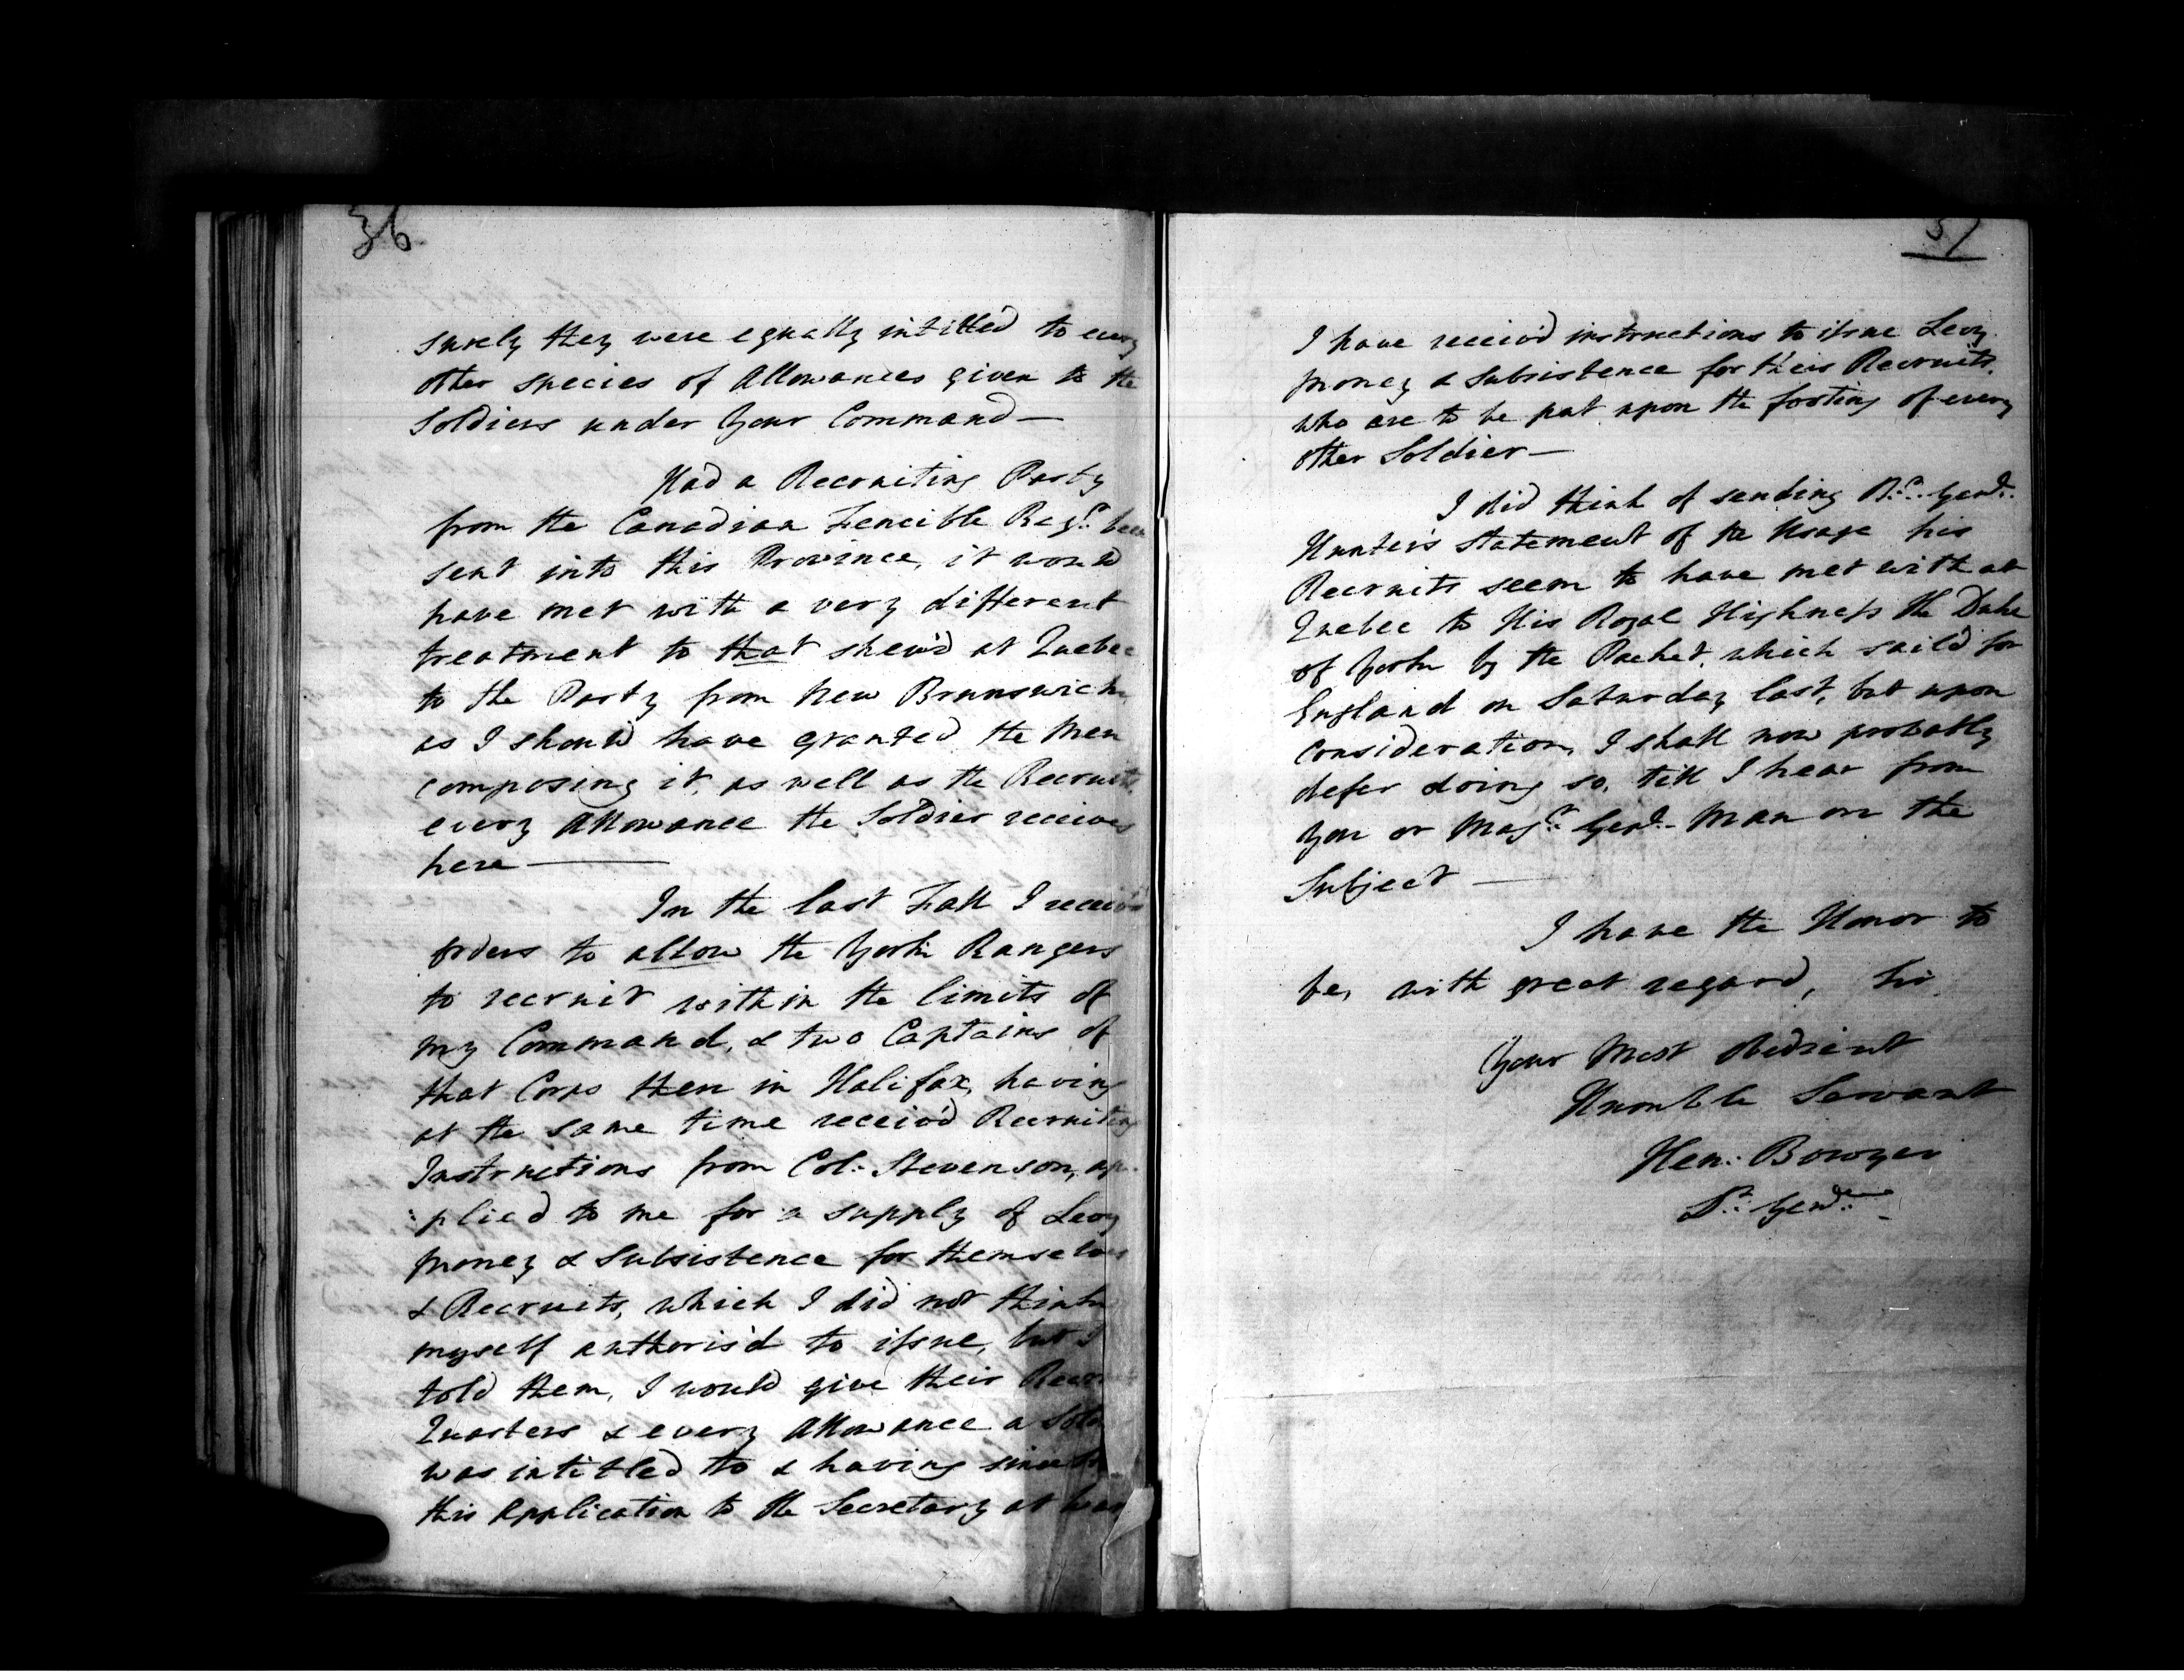 36
surely they were equally intitled to every
other species of Allowances given to the
Soldiers under Your Command —
Had a Recruiting Party
from the Canadian Fencible Regt. been
sent into this Province, it would
have met with a very different
treatment to that shew'd at Quebec
to the Party from New Brunswick
as I should have granted the Men
composing it, as well as the Recruits,
every Allowance the Soldier receives
here —
In the last Fall I receiv'd
orders to allow the York Rangers
to recruit within the limits of
my Command, & two Captains of
that Corps then in Halifax, having
at the same time receiv'd Recruiting
Instructions from Col: Stevenson, ap-
:plied to me for a supply of Levy
money & Subsistence for themselves
& Recruits, which I did not think
myself authoris'd to issue, but I
told them, I would give their
Quarters & every Allowance a
was intitled to & having since
this Application to the Secretary at War
37
I have receiv'd instructions to issue Levy
money & Subsistence for their Recruits,
who are to be put upon the footing of every
other Soldier —
I did think of sending Br. Genl.
Hunter's statement of the Usage his
Recruits seem to have met with at
Quebec to His Royal Highness the Duke
of York by the Packet, which sail'd for
England on Saturday last, but upon
consideration, I shall now probably
defer doing so, till I hear from
you or Majr. Genl. Mann on the
Subject —
I have the Honor to
be, with great regard, Sir
Your Most Obedient
Humble Servant
Hen: Bowyer
Lt. Genl.